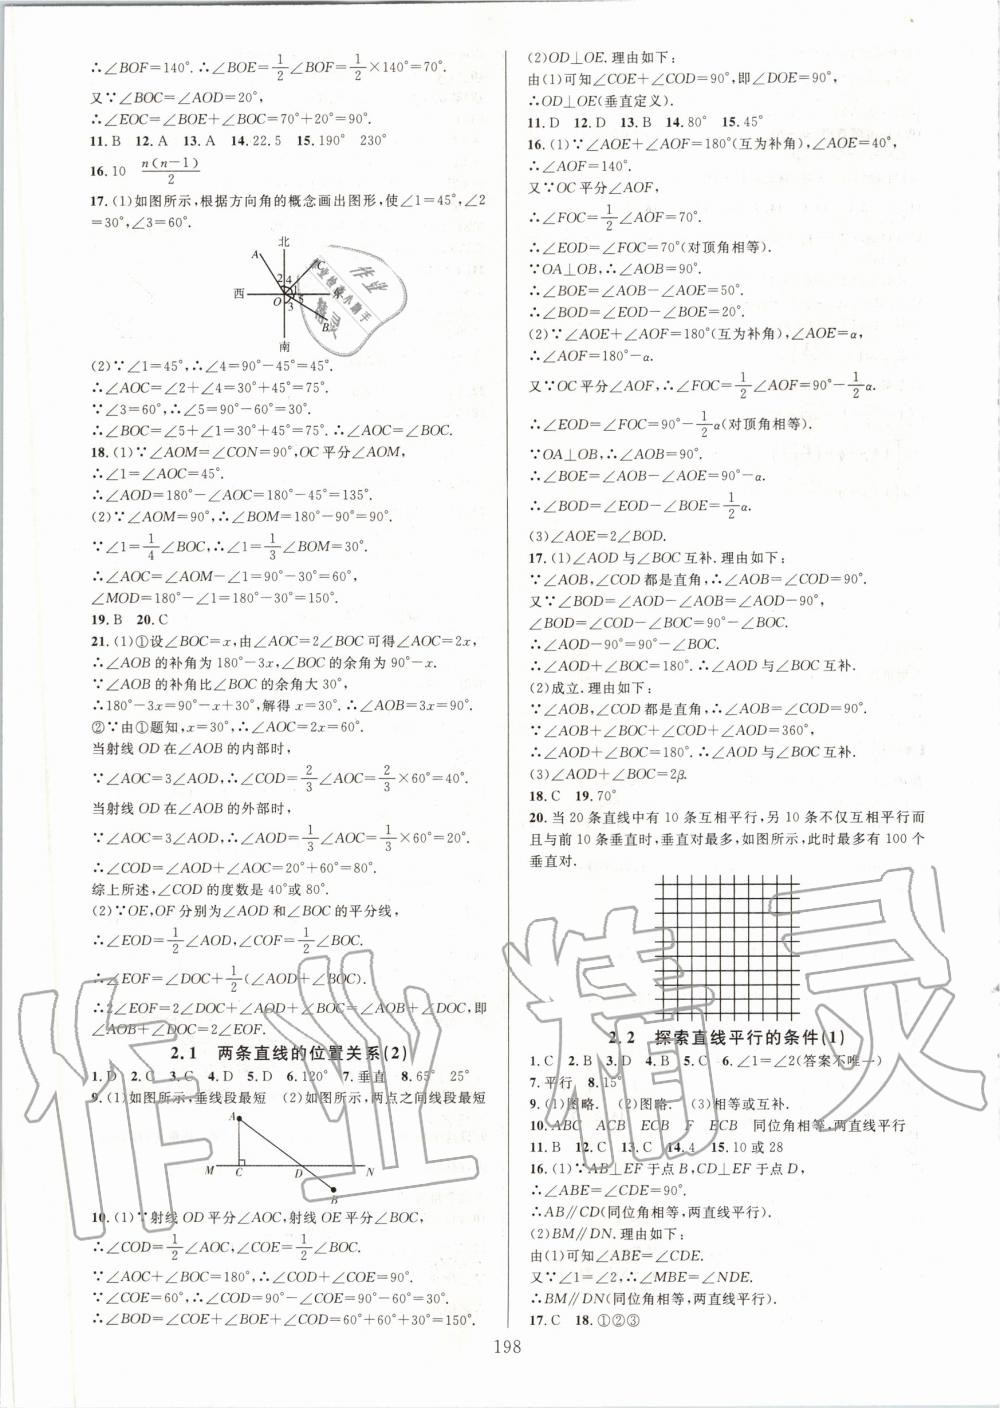 ∴∠BOF=140°.∴∠BOE=1/2∠BOF=1/2×140°=70°.
又∵∠BOC=∠AOD=20°,
∴∠EOC=∠BOE+∠BOC=70°+20°=90°.
11.B 12.A 13.A 14.22.5 15.190° 230°
16.10 n(n-1)/2
17.(1)如图所示,根据方向角的概念画出图形,使∠1=45°,∠2
=30°,∠3=60°.
北
A
C
2 4
1
西
O
3
5
B
南
(2)∵∠1=45°,∴∠4=90°-45°=45°.
∴∠AOC=∠2+∠4=30°+45°=75°.
∵∠3=60°,∴∠5=90°-60°=30°.
∴∠BOC=∠5+∠1=30°+45°=75°.∴∠AOC=∠BOC.
18.(1)∵∠AOM=∠CON=90°,OC平分∠AOM,
∴∠1=∠AOC=45°.
∴∠AOD=180°-∠AOC=180°-45°=135°.
(2)∵∠AOM=90°,∴∠BOM=180°-90°=90°.
∵∠1=1/4∠BOC,∴∠1=1/3∠BOM=30°.
∴∠AOC=∠AOM-∠1=90°-30°=60°.
∠MOD=180°-∠1=180°-30°=150°.
19.B 20.C
21.(1)①设∠BOC=x,由∠AOC=2∠BOC可得∠AOC=2x,
∴∠AOB的补角为180°-3x,∠BOC的余角为90°-x.
∵∠AOB的补角比∠BOC的余角大30°,
∴180°-3x=90°-x+30°,解得x=30°.∴∠AOB=3x=90°.
②∵由①题知,x=30°,∴∠AOC=2x=60°.
当射线OD在∠AOB的内部时,
∵∠AOC=3∠AOD,∴∠COD=2/3∠AOC=2/3×60°=40°.
当射线OD在∠AOB的外部时,
∵∠AOC=3∠AOD,∴∠AOD=1/3∠AOC=1/3×60°=20°.
∴∠COD=∠AOD+∠AOC=20°+60°=80°.
综上所述,∠COD的度数是40°或80°.
(2)∵OE,OF分别为∠AOD和∠BOC的平分线,
∴∠EOD=1/2∠AOD,∠COF=1/2∠BOC.
∴∠EOF=∠DOC+1/2(∠AOD+∠BOC).
∴2∠EOF=2∠DOC+∠AOD+∠BOC=∠AOB+∠DOC,即
∠AOB+∠DOC=2∠EOF.
2.1 两条直线的位置关系(2)
1.D 2.C 3.C 4.D 5.D 6.120° 7.垂直 8.65° 25°
9.(1)如图所示,垂线段最短 (2)如图所示,两点之间线段最短
A
M C D N
B
10.(1)∵射线OD平分∠AOC,射线OE平分∠BOC,
∴∠COD=1/2∠AOC,∠COE=1/2∠BOC.
∵∠AOC+∠BOC=180°,∴∠COD+∠COE=90°.
∵∠COE=60°,∴∠COD=90°-∠COE=90°-60°=30°.
∴∠BOD=∠COE+∠BOE+∠COD=60°+60°+30°=150°.
(2)OD⊥OE.理由如下:
由(1)可知∠COE+∠COD=90°,即∠DOE=90°,
∴OD⊥OE(垂直定义).
11.D 12.D 13.B 14.80° 15.45°
16.(1)∵∠AOE+∠AOF=180°(互为补角),∠AOE=40°,
∴∠AOF=140°.
又∵OC平分∠AOF,
∴∠FOC=1/2∠AOF=70°.
∴∠EOD=∠FOC=70°(对顶角相等).
∵OA⊥OB,∴∠AOB=90°.
∴∠BOE=∠AOB-∠AOE=50°.
∴∠BOD=∠EOD-∠BOE=20°.
(2)∵∠AOE+∠AOF=180°(互为补角),∠AOE=α,
∴∠AOF=180°-α.
又∵OC平分∠AOF,∴∠FOC=1/2∠AOF=90°-1/2α.
∴∠EOD=∠FOC=90°-1/2α(对顶角相等).
∵OA⊥OB,∴∠AOB=90°.
∴∠BOE=∠AOB-∠AOE=90°-α.
∴∠BOD=∠EOD-∠BOE=1/2α.
(3)∠AOE=2∠BOD.
17.(1)∠AOD与∠BOC互补.理由如下:
∵∠AOB,∠COD都是直角,∴∠AOB=∠COD=90°.
又∵∠BOD=∠AOD-∠AOB=∠AOD-90°,
∠BOD=∠COD-∠BOC=90°-∠BOC,
∴∠AOD-90°=90°-∠BOC.
∴∠AOD+∠BOC=180°.∴∠AOD与∠BOC互补.
(2)成立.理由如下:
∵∠AOB,∠COD都是直角,∴∠AOB=∠COD=90°.
∵∠AOB+∠BOC+∠COD+∠AOD=360°,
∴∠AOD+∠BOC=180°.∴∠AOD与∠BOC互补.
(3)∠AOD+∠BOC=2β.
18.C 19.70°
20.当20条直线中有10条互相平行,另10条不仅互相平行而
且与前10条垂直时,垂直对最多,如图所示,此时最多有100个
垂直对.
2.2 探索直线平行的条件(1)
1.C 2.B 3.D 4.B 5.C 6.∠1=∠2(答案不唯一)
7.平行 8.15°
9.(1)图略. (2)图略. (3)相等或互补.
10.ABC ACB ECB F ECB 同位角相等,两直线平行
11.B 12.C 13.C 14.4 15.10或28
16.(1)∵AB⊥EF于点B,CD⊥EF于点D,
∴∠ABE=∠CDE=90°.
∴AB∥CD(同位角相等,两直线平行).
(2)BM∥DN.理由如下:
由(1)可知∠ABE=∠CDE.
又∵∠1=∠2,∴∠MBE=∠NDE.
∴BM∥DN(同位角相等,两直线平行).
17.C 18.①②③
198
作业精灵